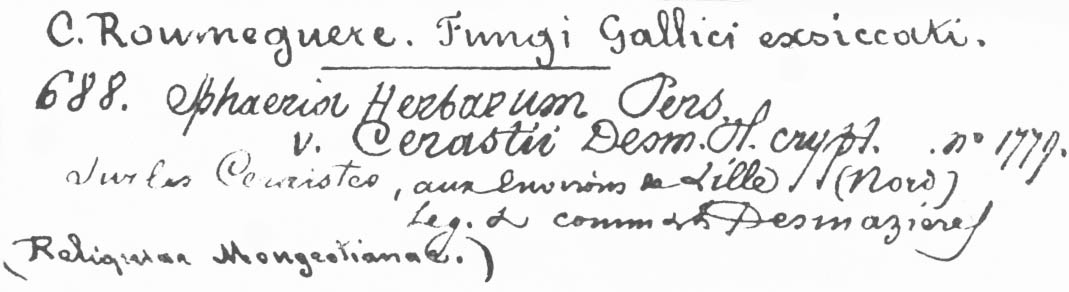 C. Roumeguere. Fungi Gallici exsiccati.
688. Sphaeria Herbarum Pers.
v. Cerastii Desm. Pl. crypt. nº 1779.
Sur les Ceraistes, aux Environs de Lille (Nord)
Leg. & comm Desmazieres
(Reliquiae Mougeotianae.)